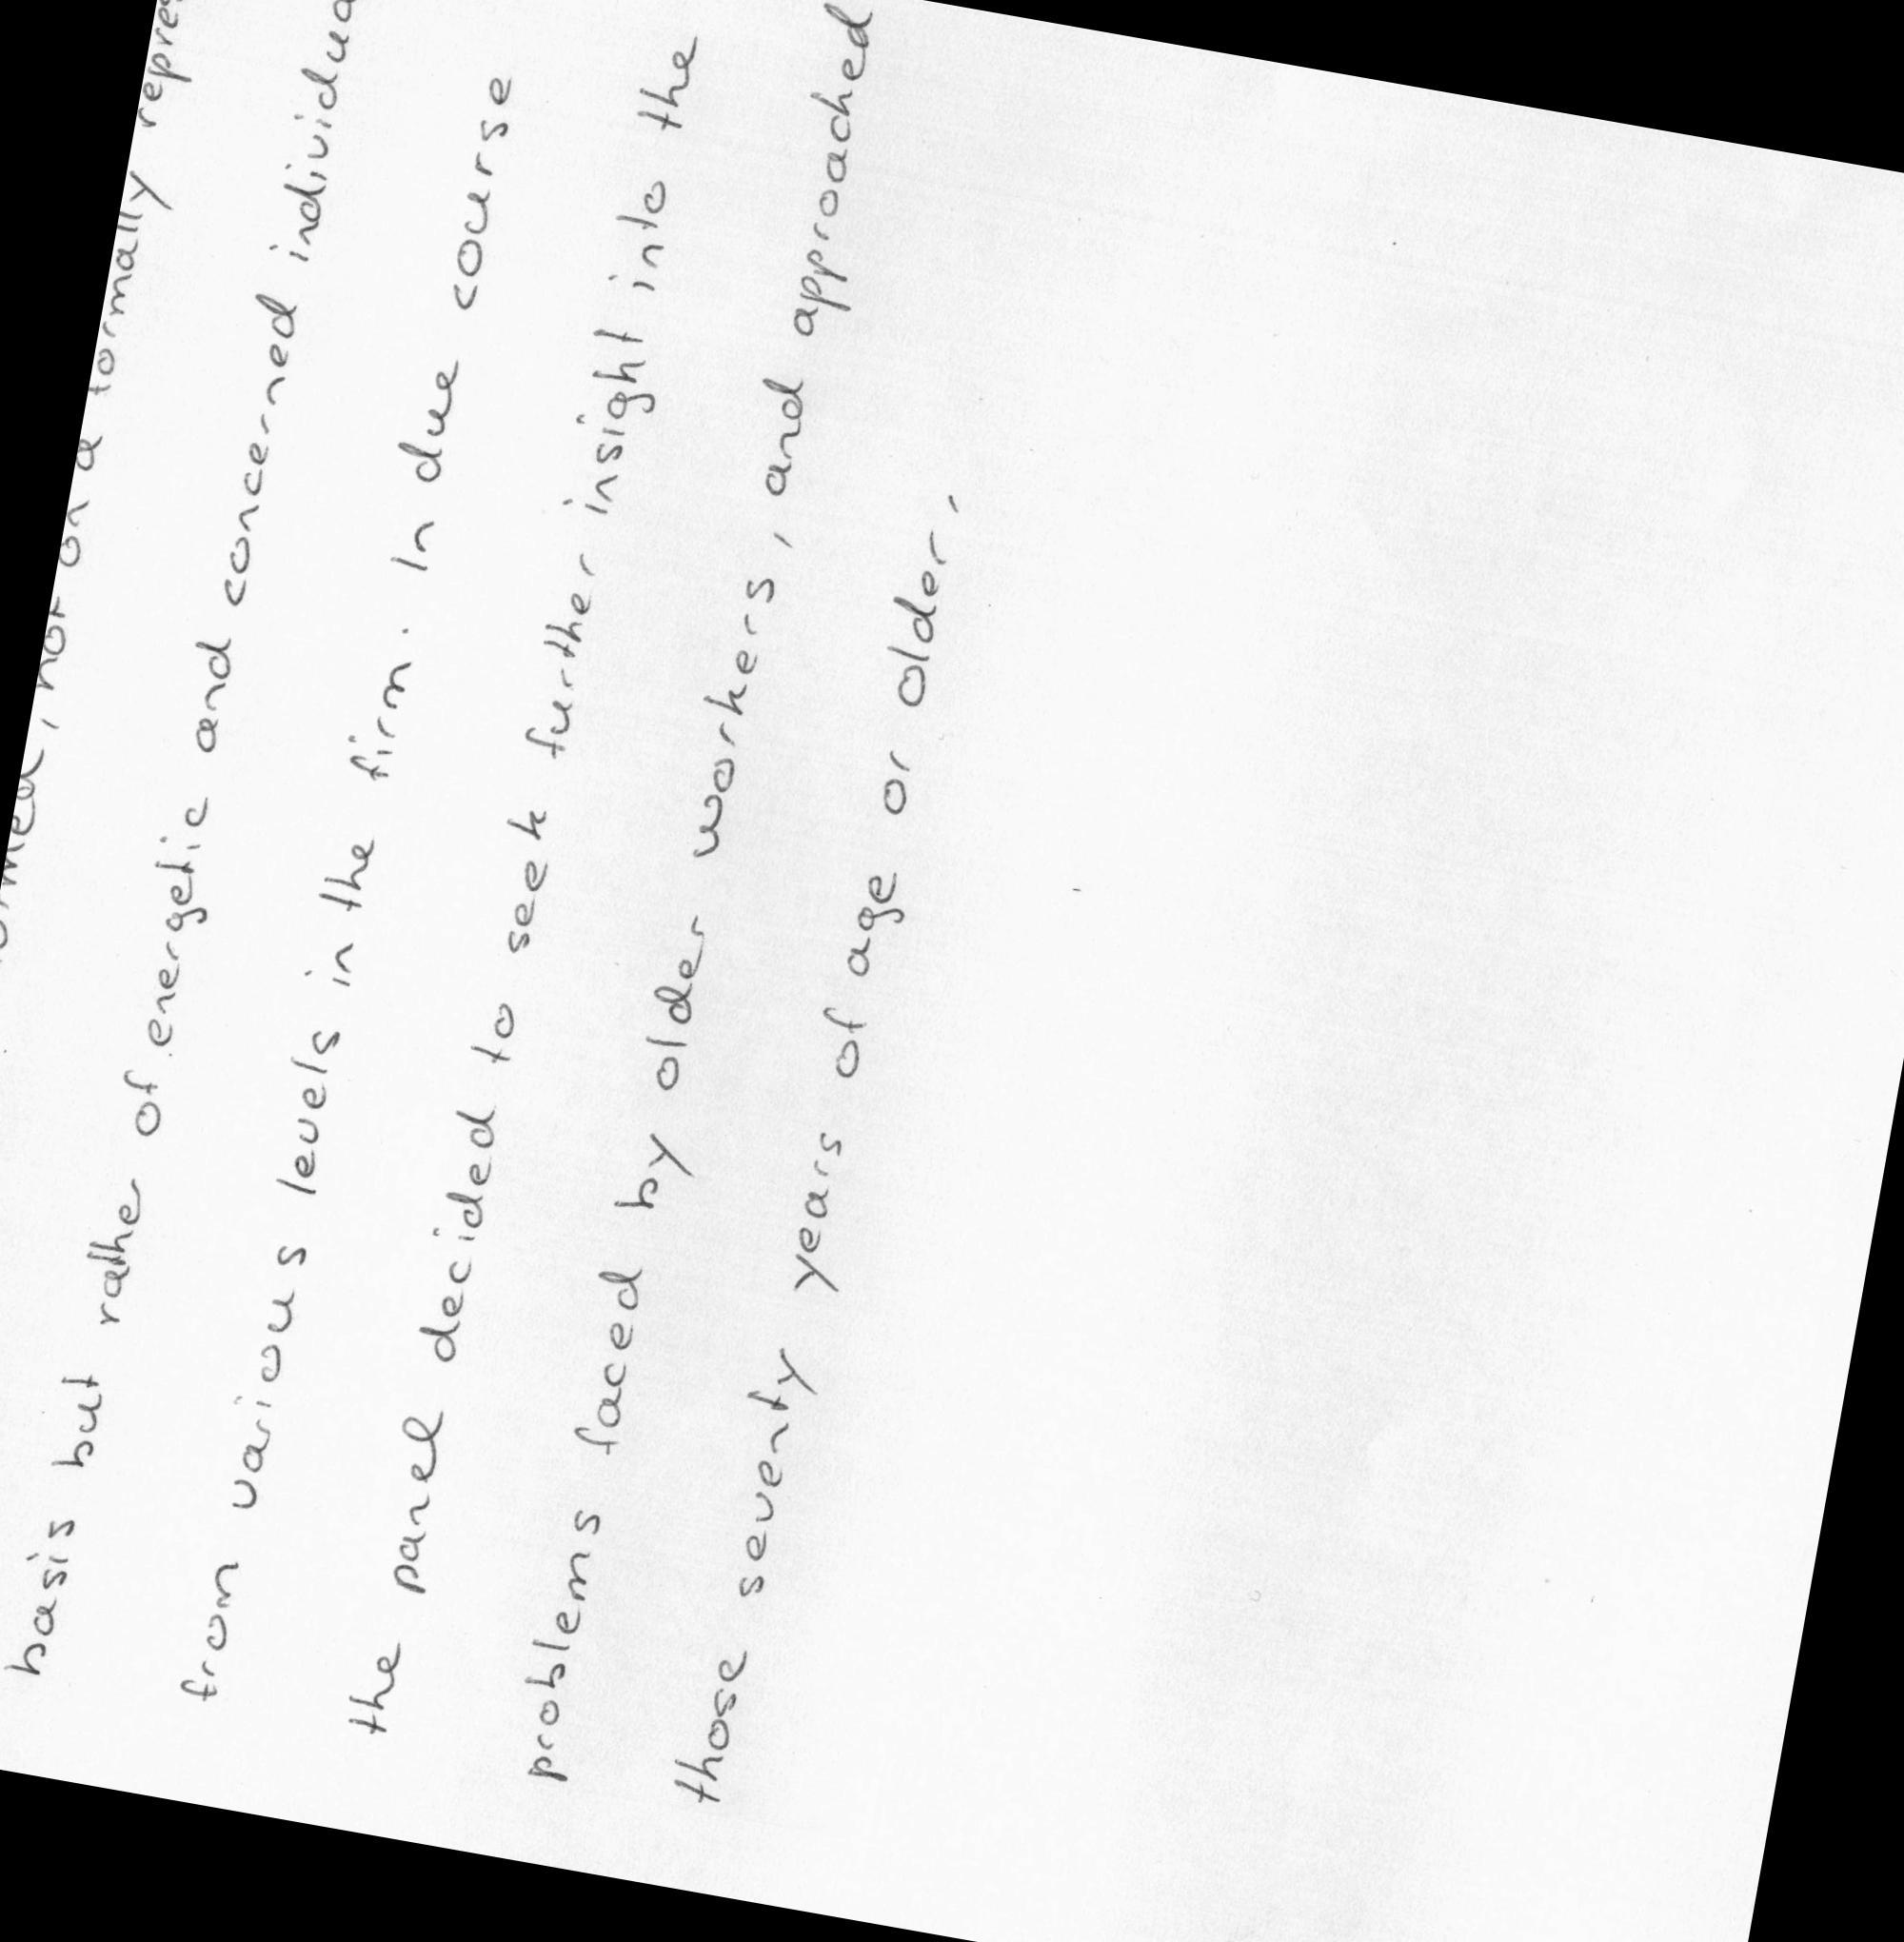 , not on a formally
basis but rather of energetic and concerned
from various levels in the firm. In due course
the panel decided to seek further insight into the
problems faced by older workers, and approached
those seventy years of age or older.